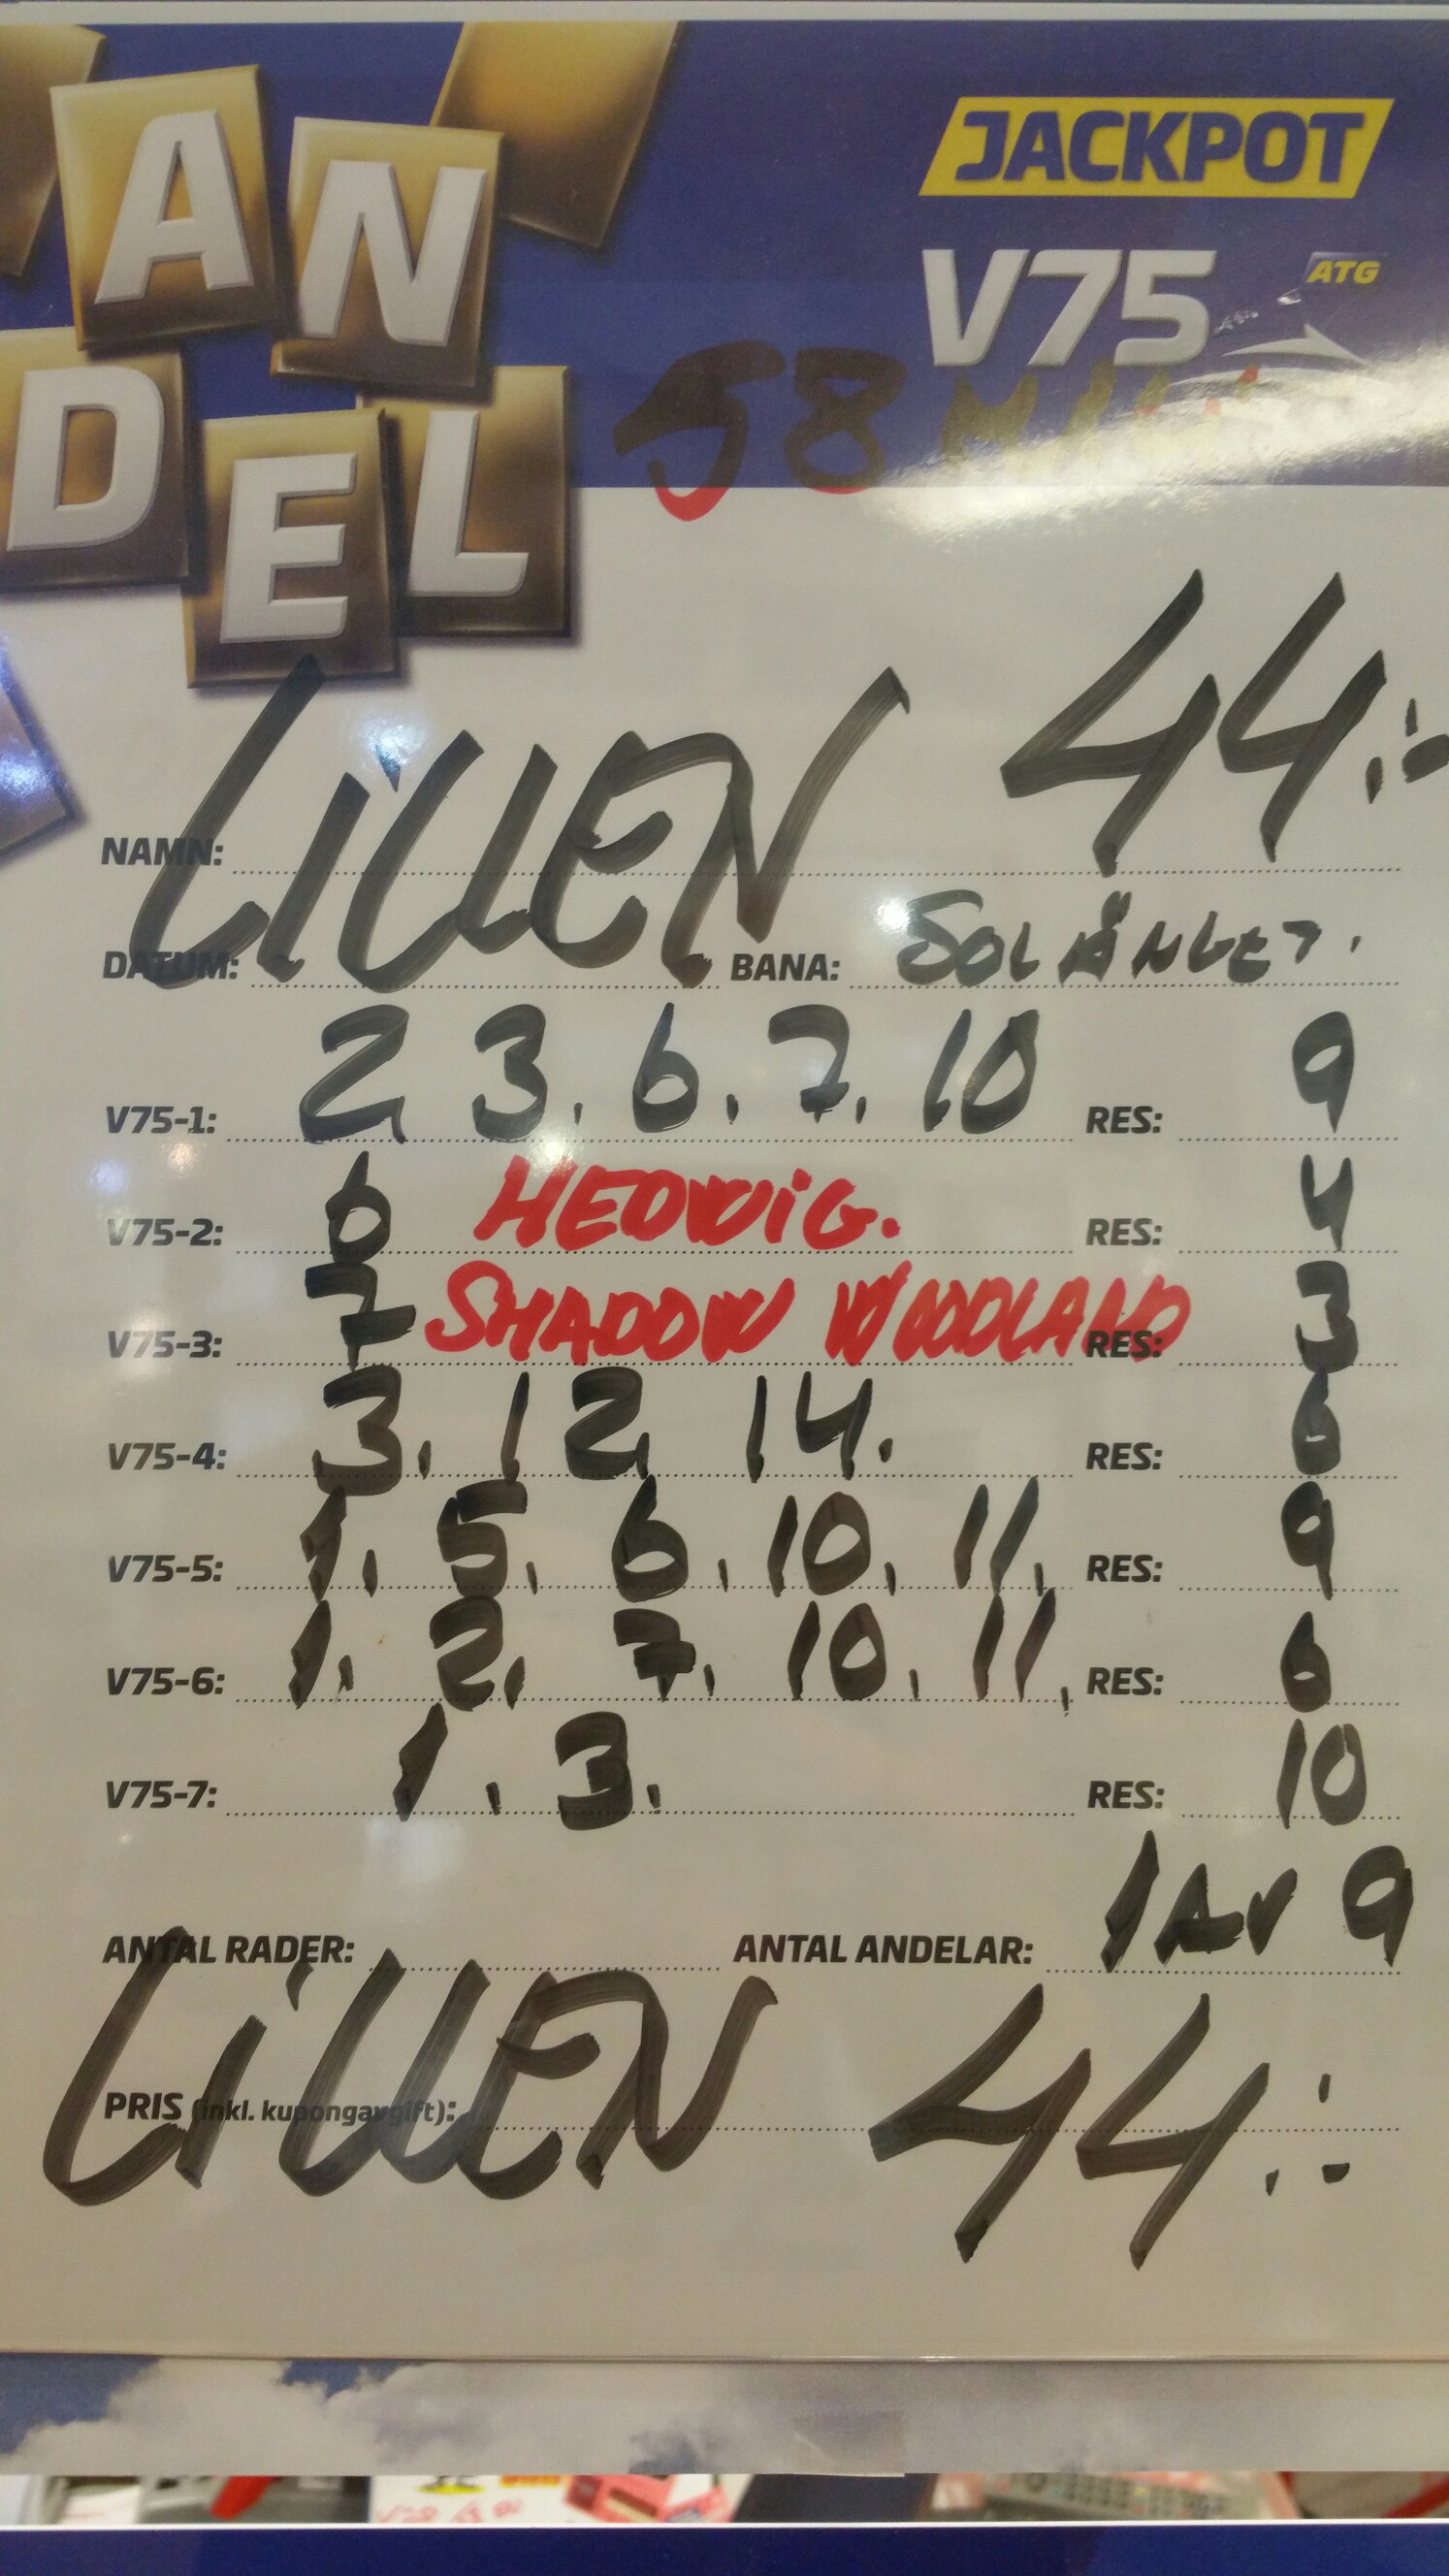 AN
DEL
JACKPOT
V75 ATG
58 MILJ
44:-
NAMN: LILLEN
DATUM: BANA: SOLÄNGET.
V75-1: 2 3. 6. 7. 10 RES: 9
V75-2: 6 HEDWIG. RES: 4
V75-3: 7 SHADOW WOODLAND RES: 3
V75-4: 3. 12 14. RES: 6
V75-5: 1. 5. 6. 10. 11. RES: 9
V75-6: 1. 2. 7. 10. 11. RES: 6
V75-7: 1. 3. RES: 10
ANTAL RADER: ANTAL ANDELAR: 1 AV 9
LILLEN 44:-
PRIS (inkl. kupongavgift):